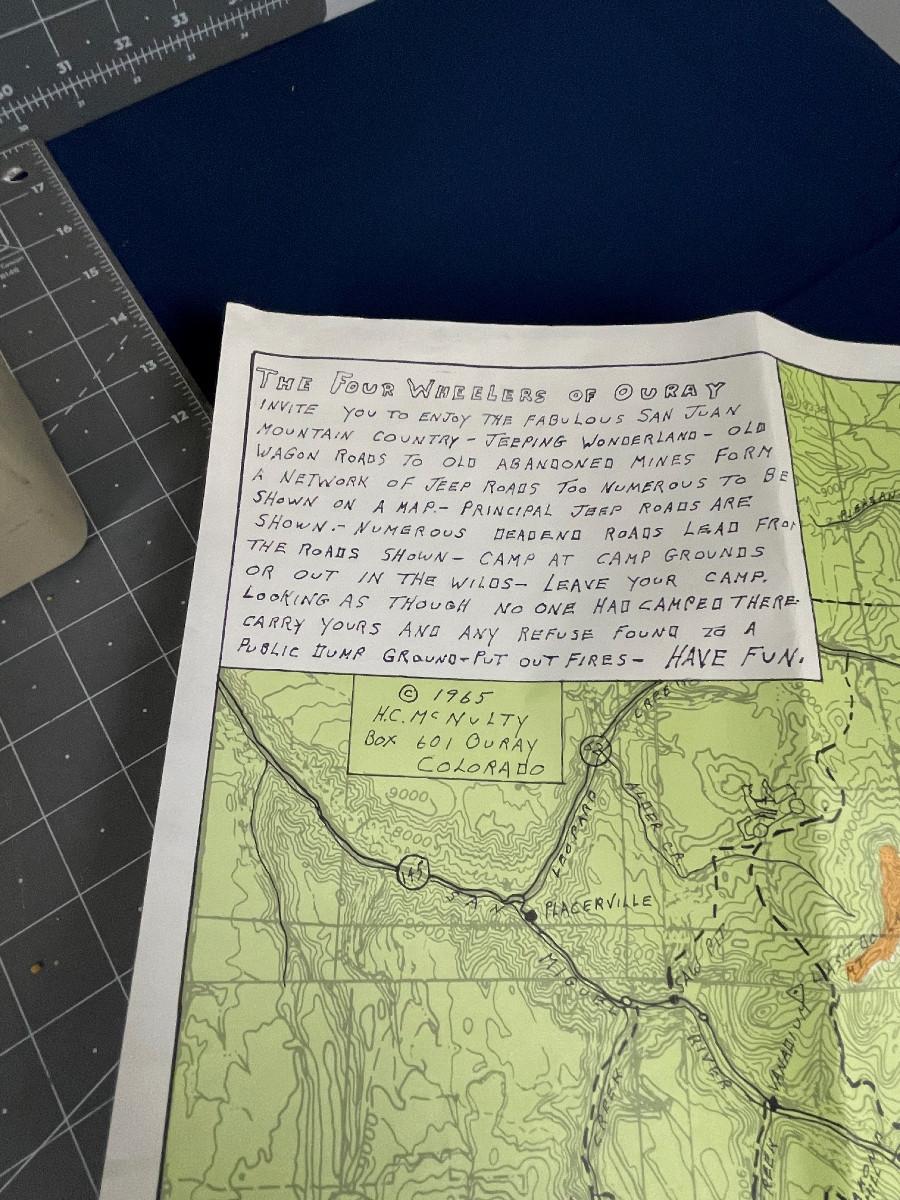 THE FOUR WHEELERS OF OURAY
INVITE YOU TO ENJOY THE FABULOUS SAN JUAN
MOUNTAIN COUNTRY - JEEPING WONDERLAND - OLD
WAGON ROADS TO OLD ABANDONED MINES FORM
A NETWORK OF JEEP ROADS TOO NUMEROUS TO BE
SHOWN ON A MAP.- PRINCIPAL JEEP ROADS ARE
SHOWN.- NUMEROUS DEADEND ROADS LEAD FROM
THE ROADS SHOWN - CAMP AT CAMP GROUNDS
OR OUT IN THE WILDS - LEAVE YOUR CAMP.
LOOKING AS THOUGH NO ONE HAD CAMPED THERE.
CARRY YOURS AND ANY REFUSE FOUND TO A
PUBLIC DUMP GROUND - PUT OUT FIRES - HAVE FUN.
© 1965
H.C. McNULTY
BOX 601 OURAY
COLORADO
62
LEOPARD
ALDER CR.
9000
8000
145
PLACERVILLE
SAN
MIGUEL
RIVER
SAW PIT
VANADIUM
CREEK
9000
31
32
33
17
16
15
14
13
12